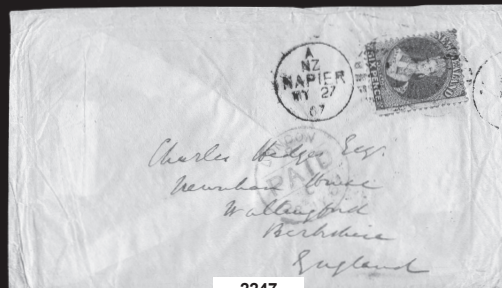 A
NZ
NAPIER
MY 27
67
SIXPENCE
NEW ZEALAND
PAID
Charles Hedges Esqr.
Newnham House
Wallingford
Berkshire
England
2247